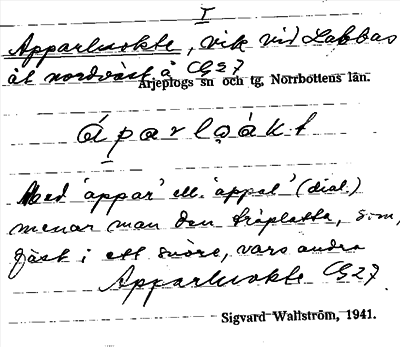 I
Apparluokte, vik vid Labbas
åt nordväst å CG 27
Arjeplogs sn och tg, Norrbottens län.
áparlọ̀ákt
Med 'appar' ell. 'appal' (dial.)
menar man den träplatta, som,
fäst i ett snöre, vars andra
Apparluokte CG 27.
Sigvard Wallström, 1941.